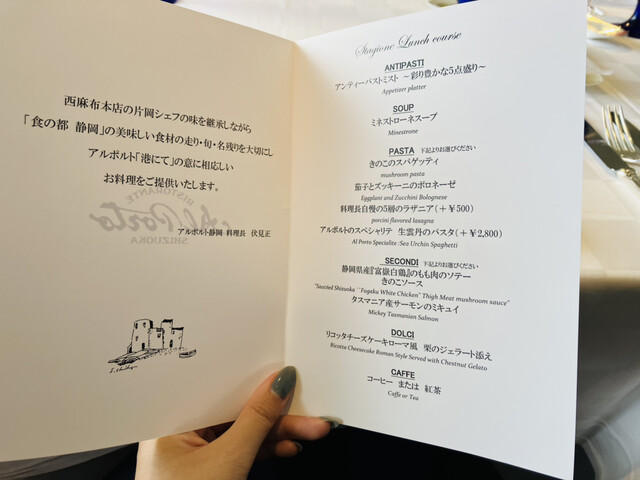 西麻布本店の片岡シェフの味を継承しながら
「食の都 静岡」の美味しい食材の走り・旬・名残りを大切にし
アルポルト「港にて」の意に相応しい
お料理をご提供いたします。
RISTORANTE
Al Porto
SHIZUOKA
アルポルト静岡 料理長 伏見正
Stagione Lunch course
ANTIPASTI
アンティーパストミスト ～彩り豊かな5点盛り～
Appetizer platter
SOUP
ミネストローネスープ
Minestrone
PASTA 下記よりお選びください
きのこのスパゲッティ
mushroom pasta
茄子とズッキーニのボロネーゼ
Eggplant and Zucchini Bolognese
料理長自慢の5層のラザニア(＋￥500)
porcini flavored lasagna
アルポルトのスペシャリテ 生雲丹のパスタ(＋￥2,800)
Al Porto Specialite :Sea Urchin Spaghetti
SECONDI 下記よりお選びください
静岡県産『富嶽白鶏』のもも肉のソテー
きのこソース
"Sautéed Shizuoka ``Fugaku White Chicken'' Thigh Meat mushroom sauce"
タスマニア産サーモンのミキュイ
Mickey Tasmanian Salmon
DOLCI
リコッタチーズケーキローマ風 栗のジェラート添え
Ricotta Cheesecake Roman Style Served with Chestnut Gelato
CAFFE
コーヒー または 紅茶
Caffe or Tea